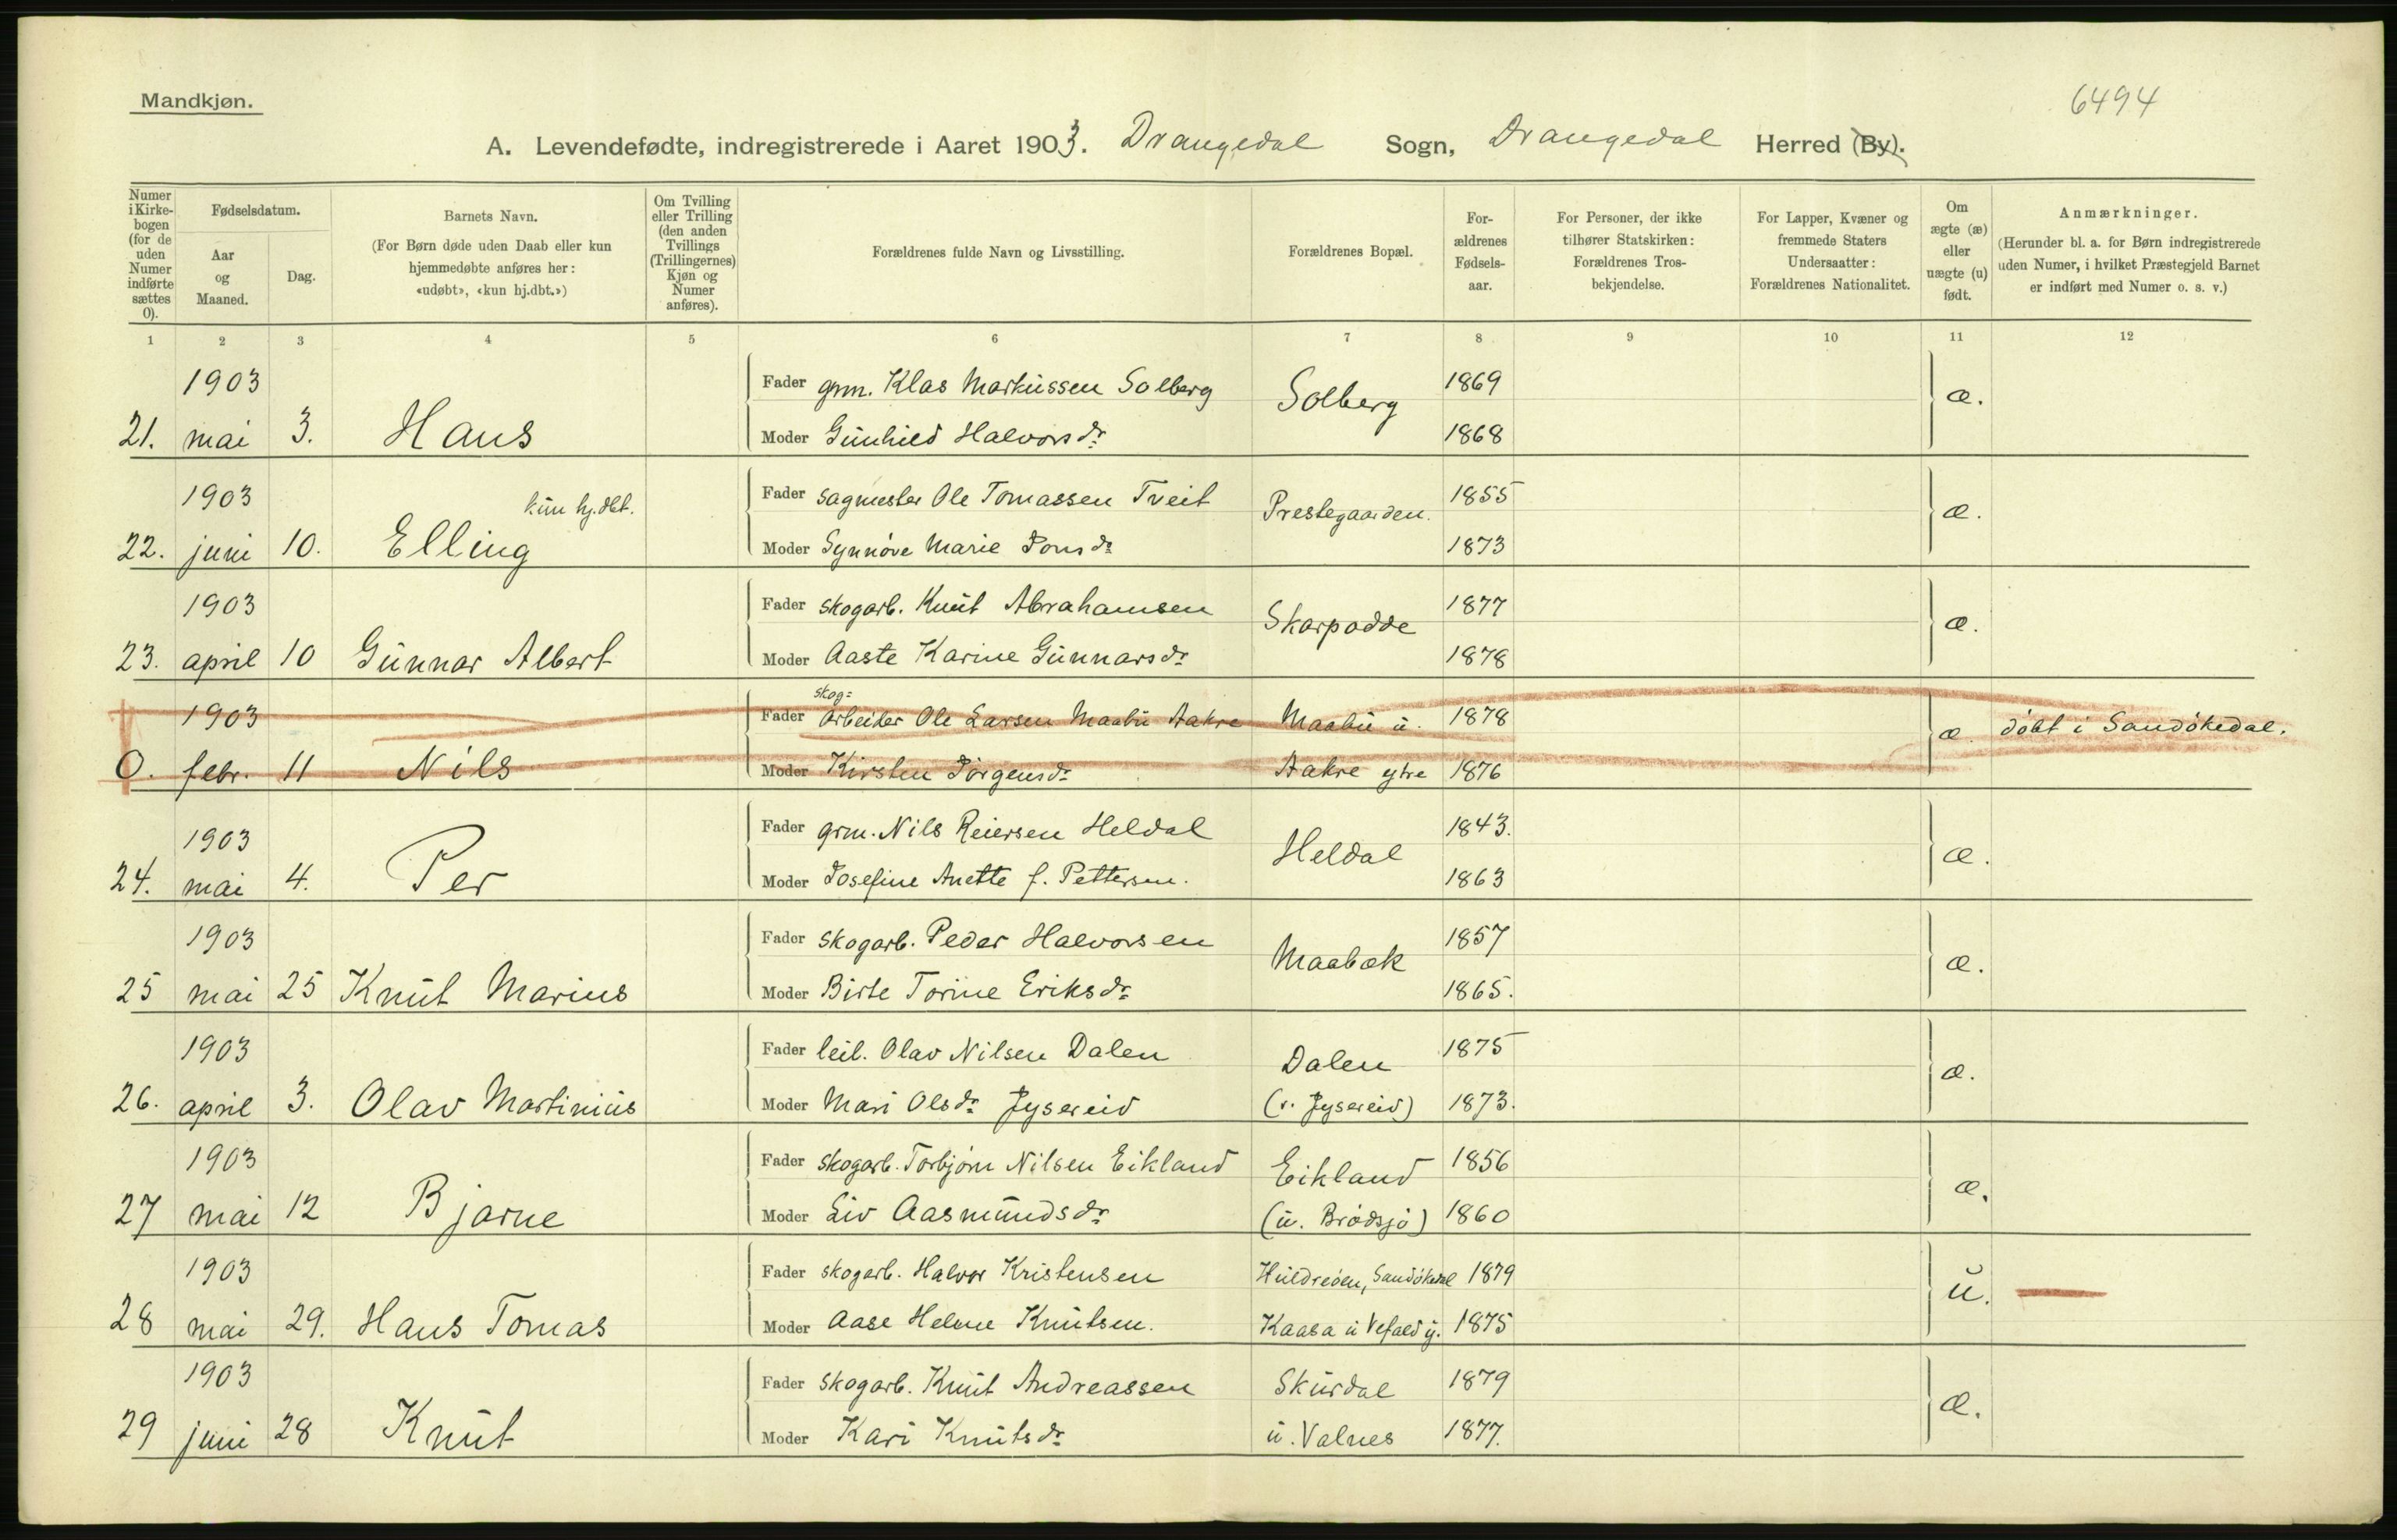 Mandkjøn.
6494
A. Levendefødte, indregistrerede i Aaret 1903. Drangedal Sogn, Drangedal Herred (By).
Numer i Kirkebogen (for de uden Numer indførte sættes 0).
Fødselsdatum.
Aar og Maaned.
Dag.
Barnets Navn.
(For Børn døde uden Daab eller kun
hjemmedøbte anføres her:
«udøbt», «kun hj.dbt.»)
Om Tvilling
eller Trilling
(den anden
Tvillings
(Trillingernes)
Kjøn og
Numer
anføres).
Forældrenes fulde Navn og Livsstilling.
Forældrenes Bopæl.
For-
ældrenes
Fødsels-
aar.
For Personer, der ikke
tilhører Statskirken:
Forældrenes Tros-
bekjendelse.
For Lapper, Kvæner og
fremmede Staters
Undersaatter:
Forældrenes Nationalitet.
Om
ægte (æ)
eller
uægte (u)
født.
Anmærkninger.
(Herunder bl. a. for Børn indregistrerede
uden Numer, i hvilket Præstegjeld Barnet
er indført med Numer o. s. v.)
1 2 3 4 5 6 7 8 9 10 11 12
1903 Fader grm. Klas Markussen Solberg Solberg 1869 æ.
21. mai 3. Hans Moder Gunhild Halvorsdr 1868
1903 kun hj.dbt. Fader sagmester Ole Tomassen Tveit Prestegaarden. 1855 æ.
22. juni 10. Elling Moder Synnøve Marie Jonsdr 1873
1903 Fader skogarb. Knut Abrahamsen Skarpodde 1877 æ.
23. april 10 Gunnar Albert Moder Aaste Karine Gunnarsdr 1878
skog=
1903 Fader arbeider Ole Larsen Maabu Aakre Maabu u. 1878 æ. døbt i Sandøkedal.
0. febr. 11 Nils Moder Kirsten Jørgensdr Aakre ytre 1876
1903 Fader grm. Nils Reiersen Heldal Heldal 1843. æ.
24. mai 4. Per Moder Josefine Anette f. Pettersen. 1863
1903 Fader skogarb. Peder Halvorsen Maabæk 1857 æ.
25 mai 25 Knut Marius Moder Birte Torine Eriksdr 1865.
1903 Fader leil. Olav Nilsen Dalen Dalen 1875 æ.
26. april 3. Olav Martinius Moder Mari Olsdr Jysereid (v. Jysereid) 1873.
1903 Fader skogarb. Torbjørn Nilsen Eikland Eikland 1856 æ.
27 mai 12 Bjarne Moder Liv Aasmundsdr (u. Brødsjø) 1860
1903 Fader skogarb. Halvor Kristensen Huldreøen, Sandøkedal 1879 u.
28 mai 29. Hans Tomas Moder Aase Helene Knutsen. Kaasa u Vefald y. 1875
1903 Fader skogarb. Knut Andreassen Skurdal 1879 æ.
29 juni 28 Knut Moder Kari Knutsdr u. Valnes 1877.